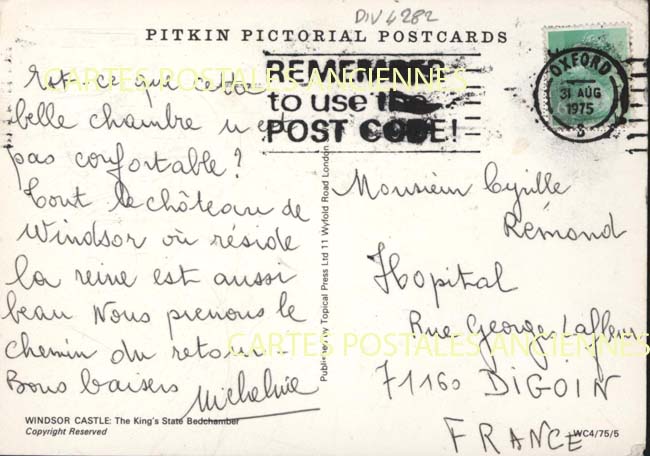 DIV 4282
PITKIN PICTORIAL POSTCARDS
REMEMBER
to use the
POST CODE!
OXFORD
31 AUG
1975
Est-ce que cette
belle chambre n'est
pas confortable ?
Tout le château de
Windsor où réside
la reine est aussi
beau Nous prenons le
chemin du retour.
Bons baisers Micheline
WINDSOR CASTLE: The King's State Bedchamber
Copyright Reserved
Published by Topical Press Ltd 11 Wyfold Road London
Monsieur Cyrille
Rémond
Hopital
Rue George Lafleur
71160 DIGOIN
FRANCE
WC4/75/5
CARTES POSTALES ANCIENNES
CARTES POSTALES ANCIENNES